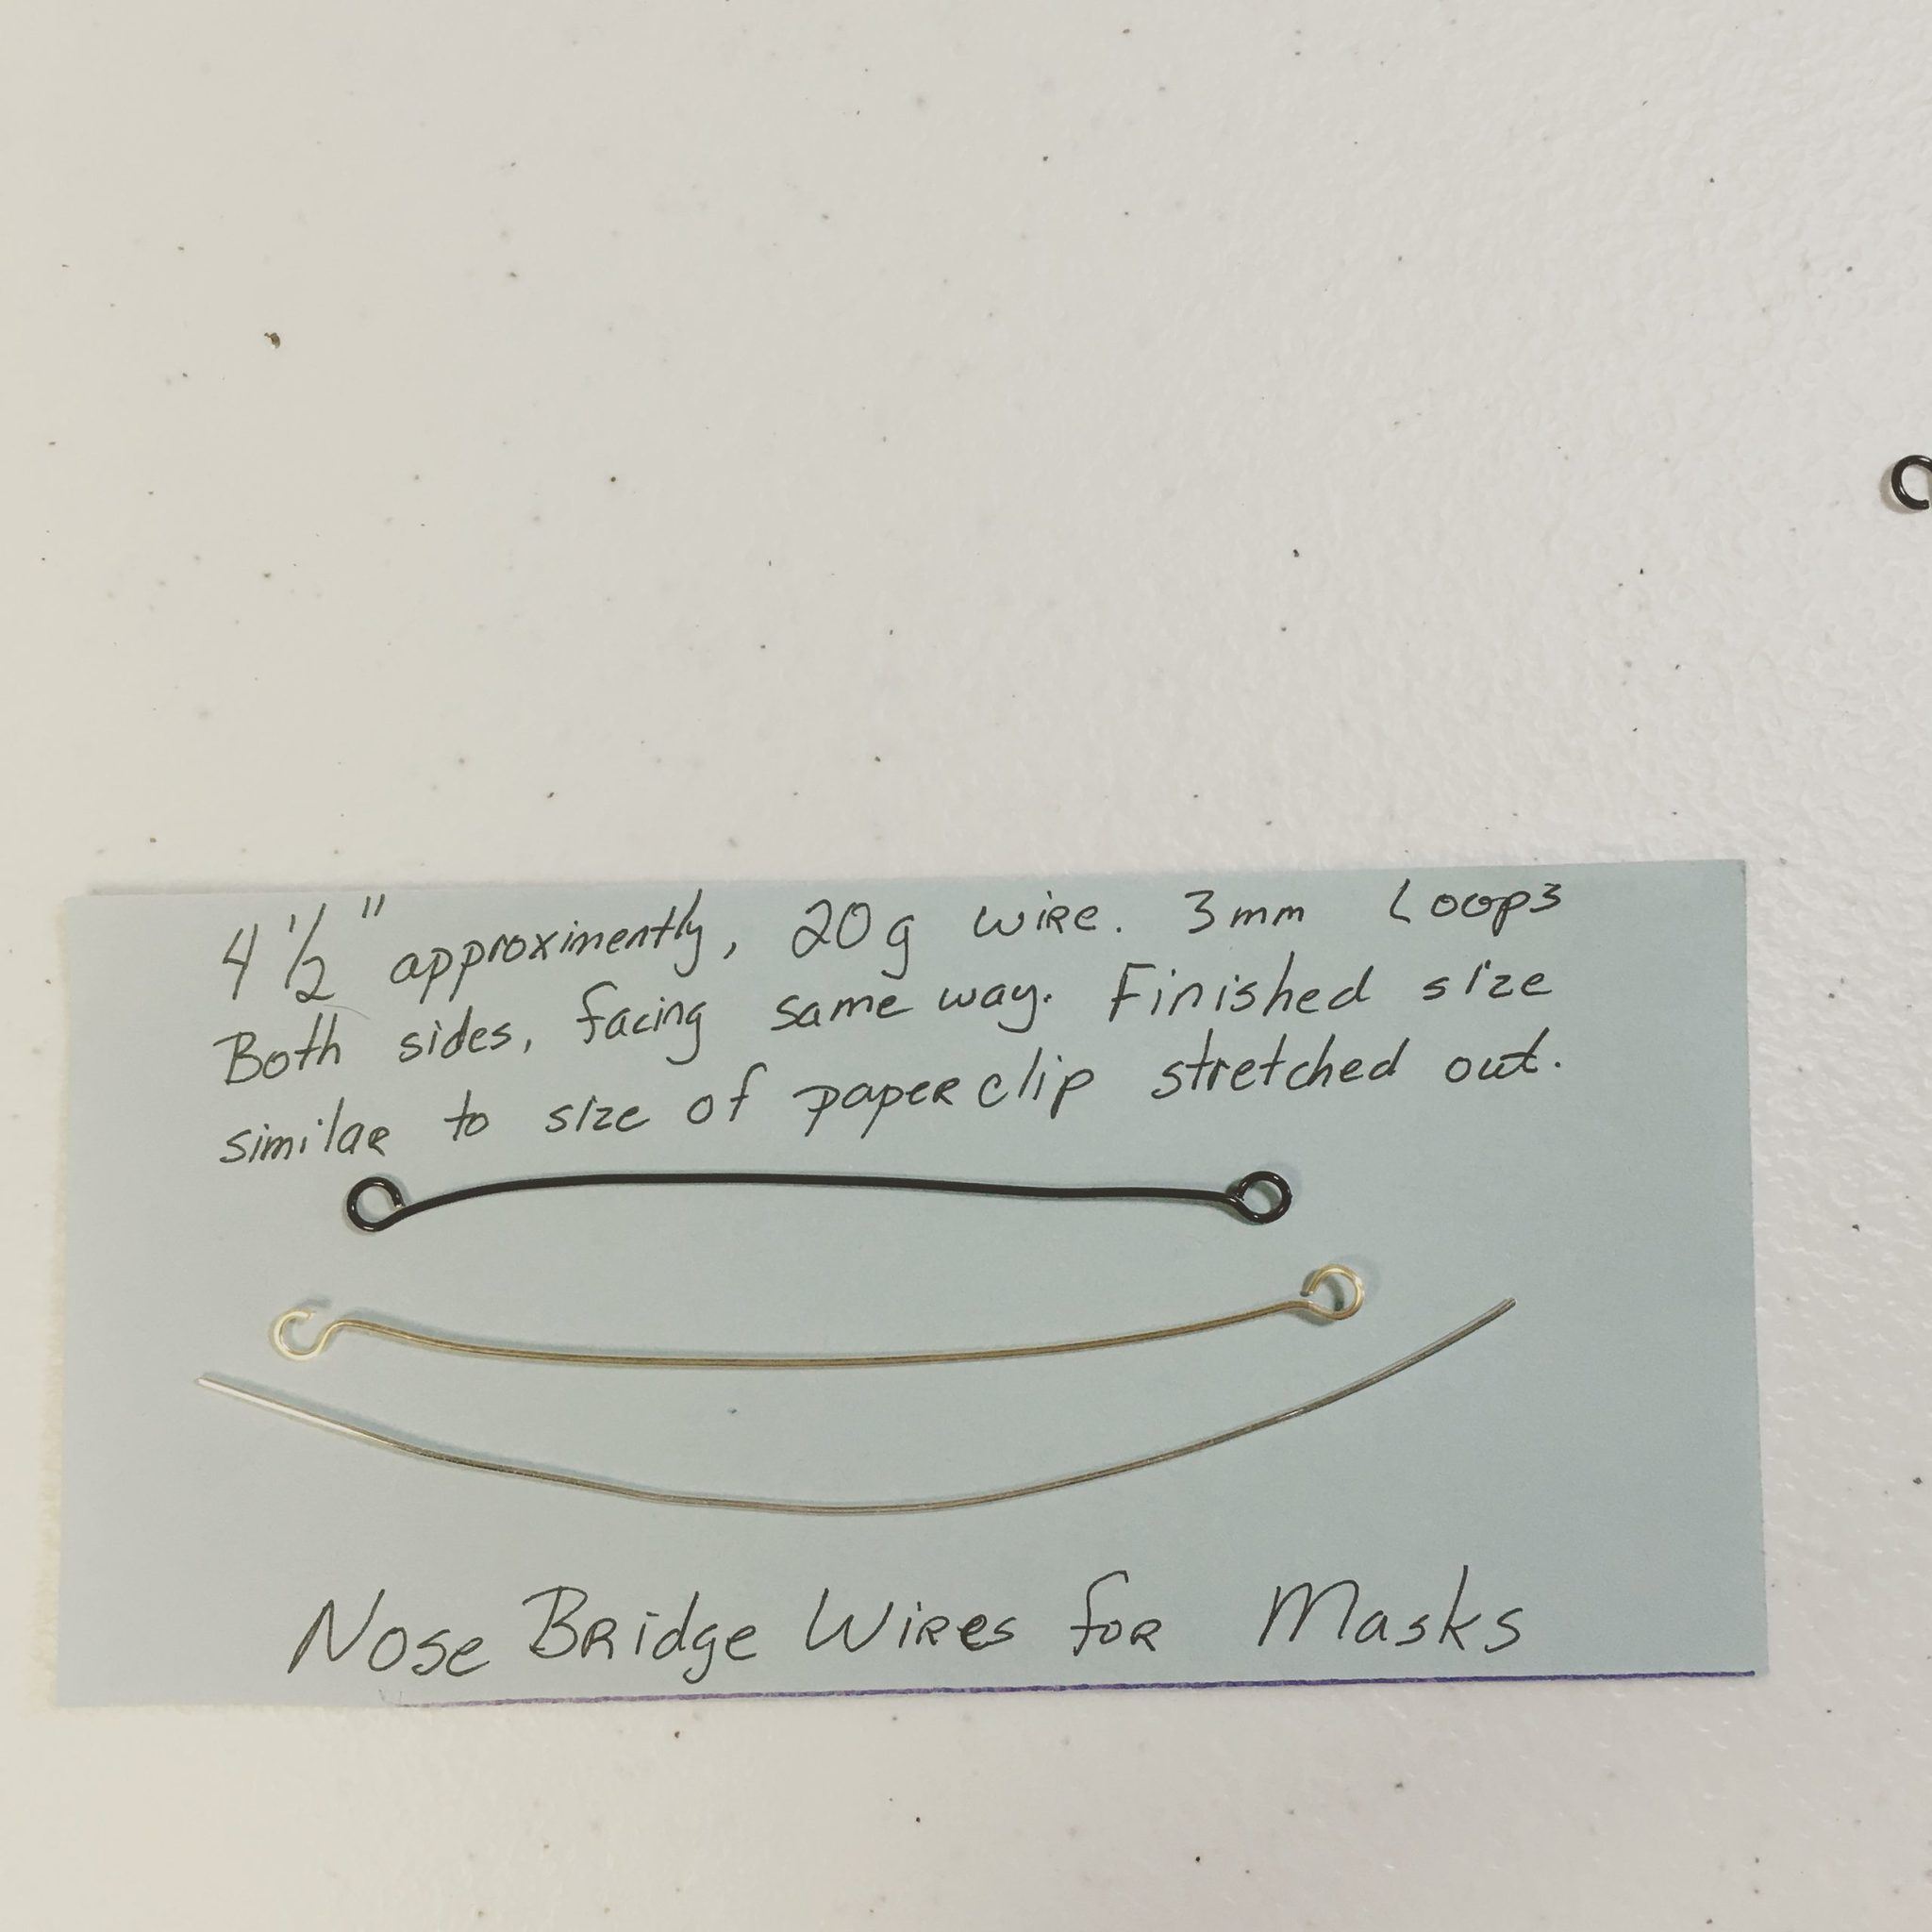 4 1/2" approximently, 20g wire. 3mm Loops
Both sides, facing same way. Finished size
similar to size of paperclip stretched out.
Nose Bridge Wires for Masks